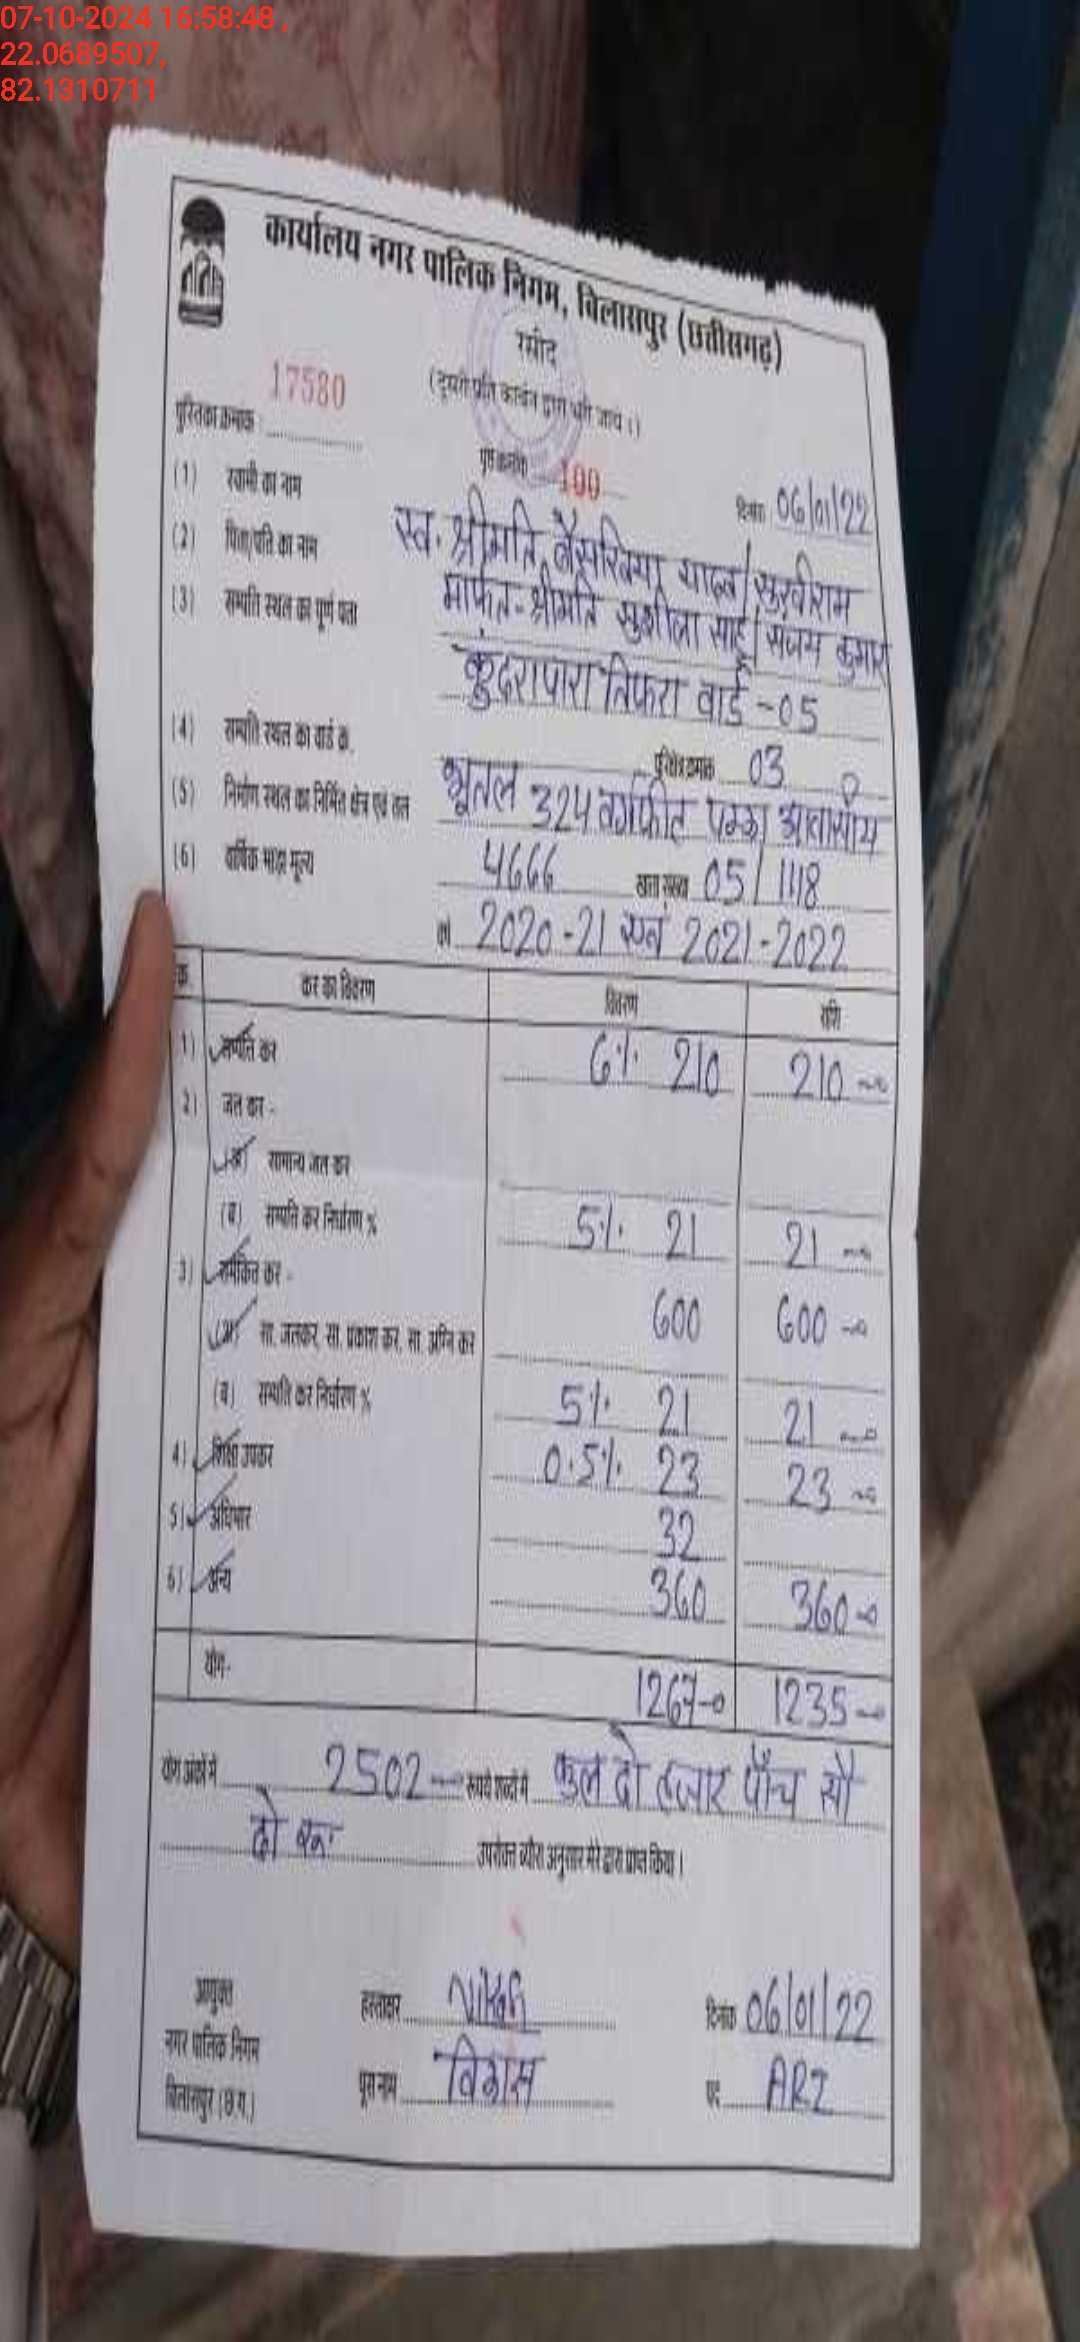 07-10-2024 16:58:48 ,
22.0689507,
82.1310711
कार्यालय नगर पालिक निगम, बिलासपुर (छत्तीसगढ़)
रसीद
(दूसरी प्रति कार्बन द्वारा भरी जाय।)
पुस्तिका क्रमांक 17580 पृष्ठ क्रमांक 100 दिनांक 06/01/22
(1) स्वामी का नाम स्व. श्रीमति बैसखिया यादव/सुखीराम
(2) पिता/पति का नाम मार्फत-श्रीमति सुशीला साहू/संजय कुमार
(3) सम्पति स्थल का पूर्ण पता कुंदरापारा तिफरा वार्ड -05
(4) सम्पति स्थल का वार्ड क्र. 03
(5) निर्माण स्थल का निर्मित क्षेत्र एवं तल भूतल 324 वर्गफीट पक्का आवासीय
(6) वार्षिक भाड़ा मूल्य 4666 खाता संख्या 05/1118
वर्ष 2020-21 एवं 2021-2022
क्र. कर का विवरण विवरण राशि
1) सम्पति कर 6% 210 210
2) जल कर -
(अ) सामान्य जल कर
(ब) सम्पति कर निर्धारण % 5% 21 21
3) समेकित कर - 600 600
(अ) सा. जलकर, सा. प्रकाश कर, सा. अग्नि कर
(ब) सम्पति कर निर्धारण % 5% 21 21
4) शिक्षा उपकर 0.5% 23 23
5) अधिभार 32
6) अन्य 360 360
योग- 1267 1235
योग अंकों में 2502 रूपये शब्दों में कुल दो हजार पाँच सौ
दो रू. उपरोक्त ब्यौरा अनुसार मेरे द्वारा प्राप्त किया।
आयुक्त हस्ताक्षर दिनांक 06/01/22
नगर पालिक निगम
बिलासपुर (छ.ग.) पूरा नाम विकास पद ARI